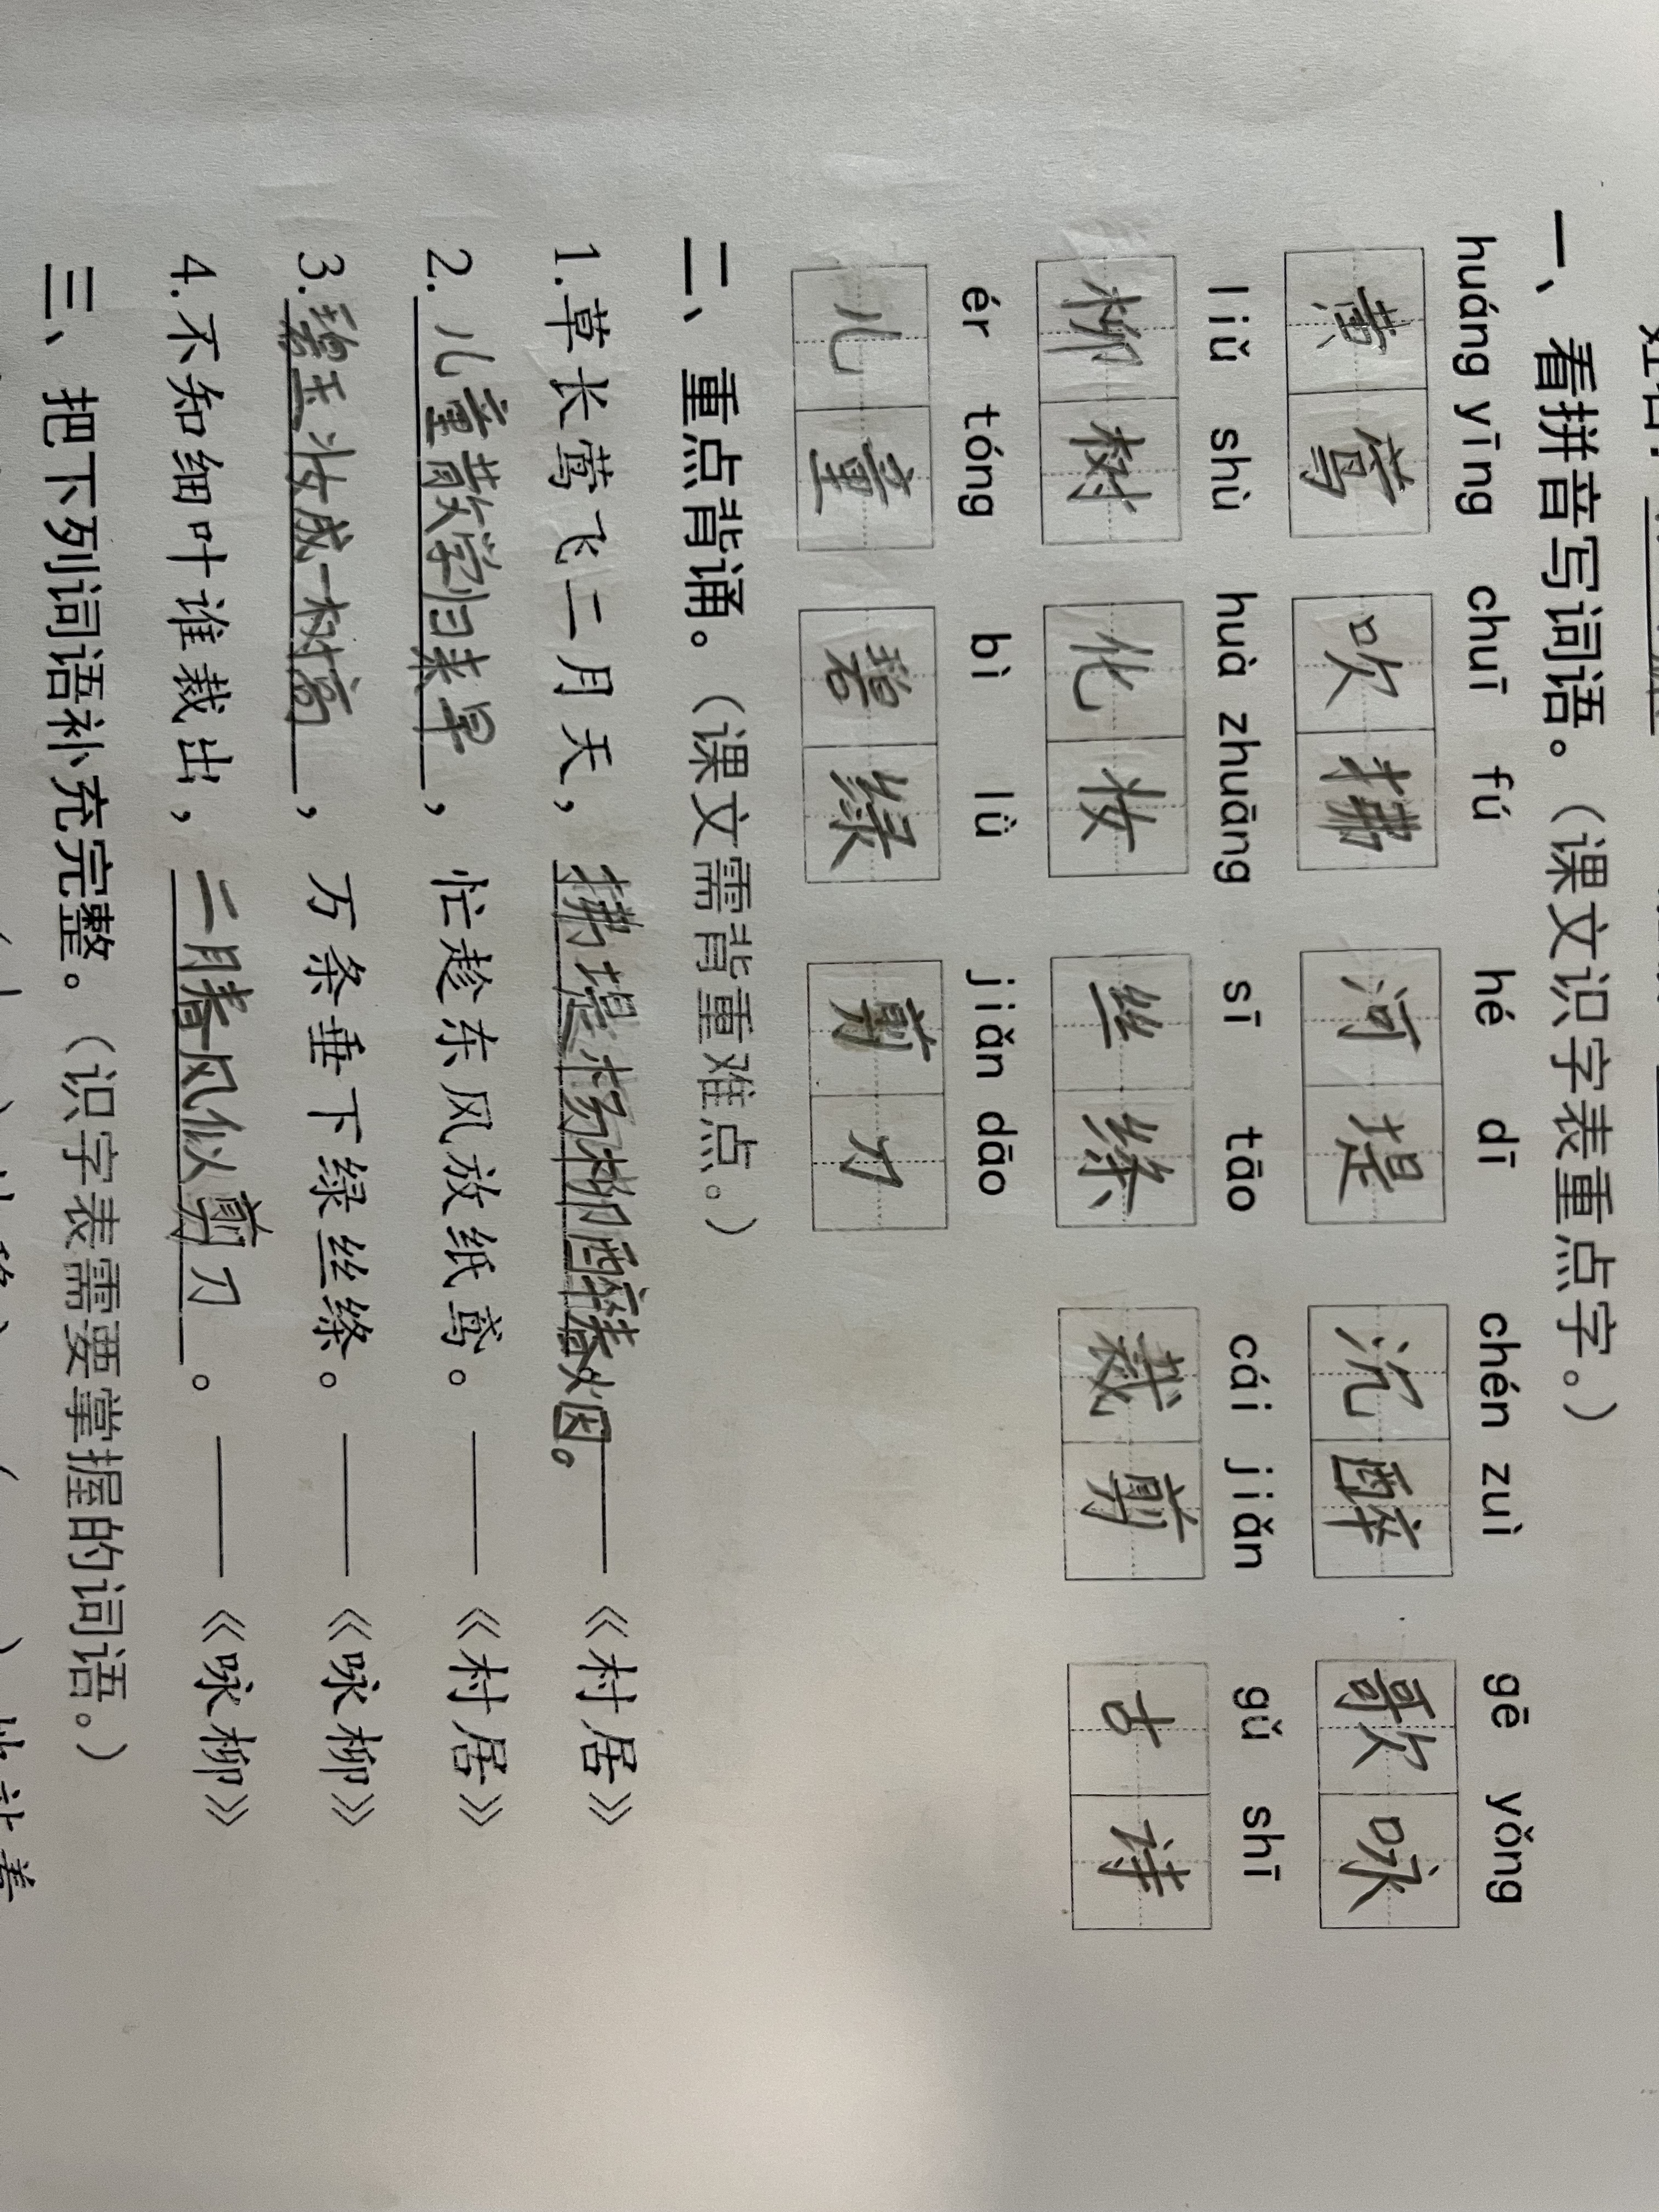 一、看拼音写词语。（课文识字表重点字。）
huáng yīng chuī fú hé dī chén zuì gē yǒng
黄莺 吹拂 河堤 沉醉 歌咏
liǔ shù huà zhuāng sī tāo cái jiǎn gǔ shī
柳树 化妆 丝绦 裁剪 古诗
ér tóng bì lǜ jiǎn dāo
儿童 碧绿 剪刀
二、重点背诵。（课文需背重难点。）
1.草长莺飞二月天，拂堤杨柳醉春烟。——《村居》
2.儿童散学归来早，忙趁东风放纸鸢。——《村居》
3.碧玉妆成一树高，万条垂下绿丝绦。——《咏柳》
4.不知细叶谁裁出，二月春风似剪刀。——《咏柳》
三、把下列词语补充完整。（识字表需要掌握的词语。）